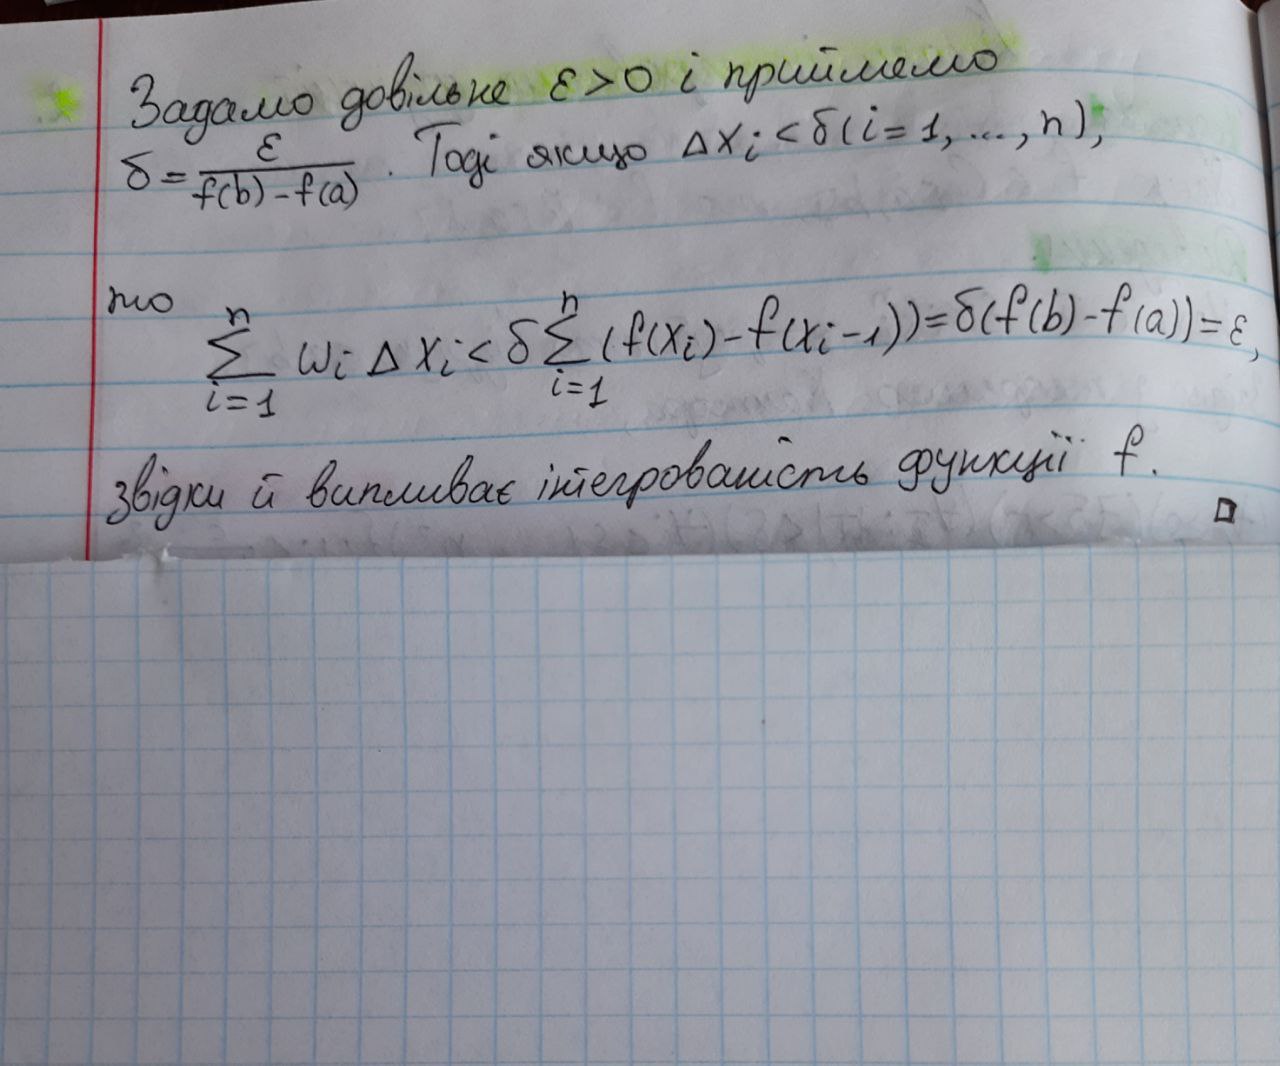 Задамо довільне ε>0 і приймемо
δ = ε / (f(b) - f(a)) . Тоді якщо Δxᵢ < δ (i = 1, ..., n),
то
∑ᵢ₌₁ⁿ ωᵢ Δxᵢ < δ ∑ᵢ₌₁ⁿ (f(xᵢ) - f(xᵢ₋₁)) = δ(f(b) - f(a)) = ε,
звідки й випливає інтегрованість функції f.
□